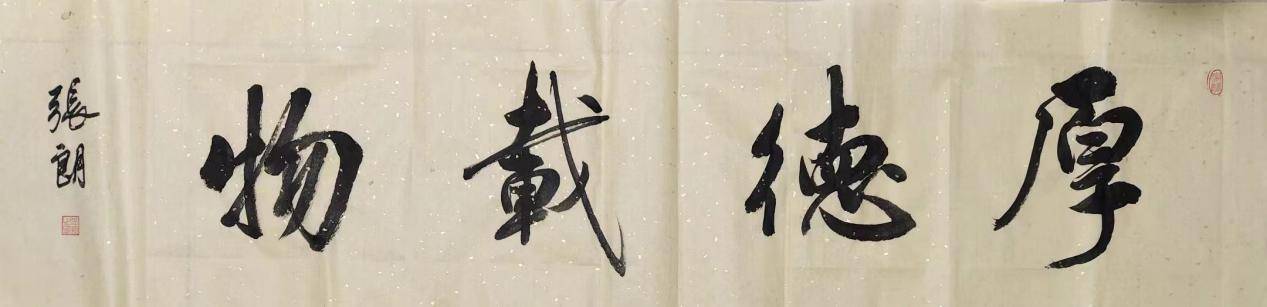 厚德載物
張朗